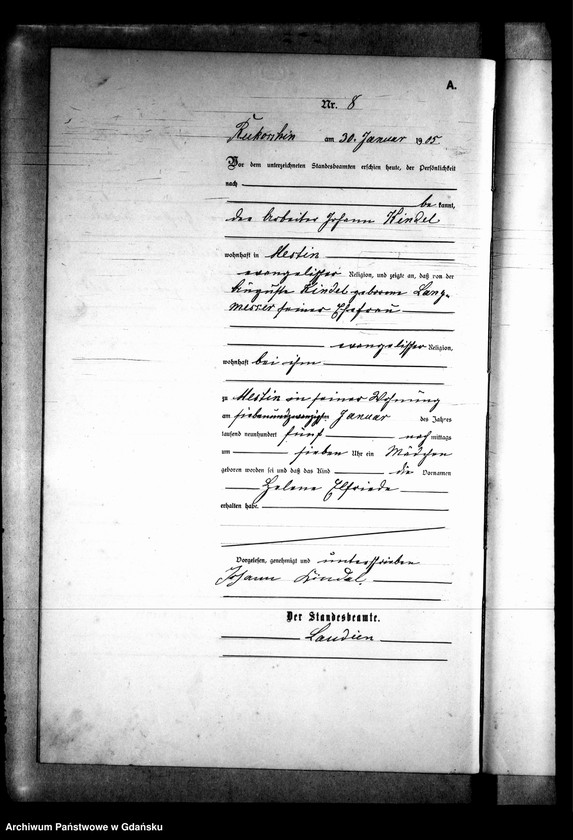 A.
Nr. 8
Rukoschin am 30. Januar 1905
Vor dem unterzeichneten Standesbeamten erschien heute, der Persönlichkeit
nach
be kannt,
der Arbeiter Johann Kindel
wohnhaft in Mestin
evangelischer Religion, und zeigte an, daß von der
Auguste Kindel geborene Lang-
messer seiner Ehefrau
evangelischer Religion,
wohnhaft bei ihm
zu Mestin in seiner Wohnung
am siebenundzwanzigsten Januar des Jahres
tausend neunhundert fünf nach mittags
um sieben Uhr ein Mädchen
geboren worden sei und daß das Kind die Vornamen
Helene Elfriede
erhalten habe.
Vorgelesen, genehmigt und unterschrieben
Johann Kindel.
Der Standesbeamte.
Landien
Archiwum Państwowe w Gdańsku